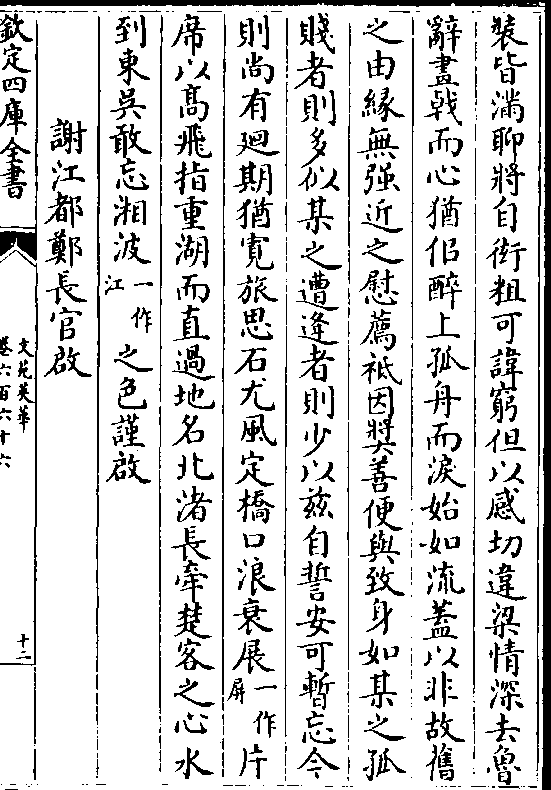 裝皆滿聊將自衒粗可諱窮但以感切違梁情深去魯
辭盡戟而心猶佀醉上孤舟而淚始如流蓋以非故舊
之由緣無强近之慰薦祗因奬善便與致身如某之孤
賤者則多似某之遭逢者則少以兹自誓安可暫忘今
則尚有廻期猶寛旅思石尤風定橋口浪衰展一作屏片
席以髙飛指重湖而直過地名北渚長牽楚客之心水
到東吳敢忘湘波一作江之色謹啟
謝江都鄭長官啟
欽定四庫全書
文苑英華
卷六百六十六
十二